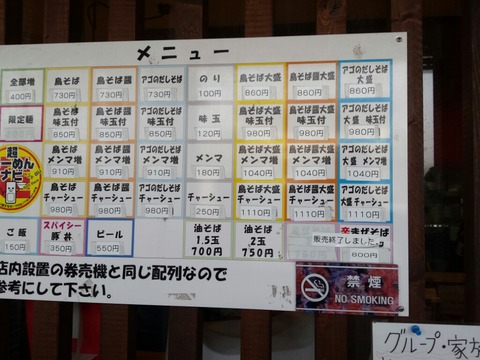 メニュー
全部増
400円
鳥そば
730円
鳥そば醤
730円
アゴのだしそば
730円
のり
100円
鳥そば大盛
860円
鳥そば醤大盛
860円
アゴのだしそば
大盛
860円
限定麺
鳥そば
味玉付
850円
鳥そば醤
味玉付
850円
アゴのだしそば
味玉付
850円
味玉
120円
鳥そば大盛
味玉付
980円
鳥そば醤大盛
味玉付
980円
アゴのだしそば
大盛 味玉付
980円
超
らーめん
ナビ
鳥そば
メンマ増
910円
鳥そば醤
メンマ増
910円
アゴのだしそば
メンマ増
910円
メンマ
180円
鳥そば大盛
メンマ増
1040円
鳥そば醤大盛
メンマ増
1040円
アゴのだしそば
大盛 メンマ増
1040円
鳥そば
チャーシュー
980円
鳥そば醤
チャーシュー
980円
アゴのだしそば
チャーシュー
980円
チャーシュー
250円
鳥そば大盛
チャーシュー
1110円
鳥そば醤大盛
チャーシュー
1110円
アゴのだしそば
大盛 チャーシュー
1110円
ご飯
150円
スパイシー
豚丼
350円
ビール
550円
油そば
1.5玉
700円
油そば
2玉
750円
辛まぜそば
800円
販売終了しました。
店内設置の券売機と同じ配列なので
参考にして下さい。
禁煙
NO SMOKING
グループ・家族